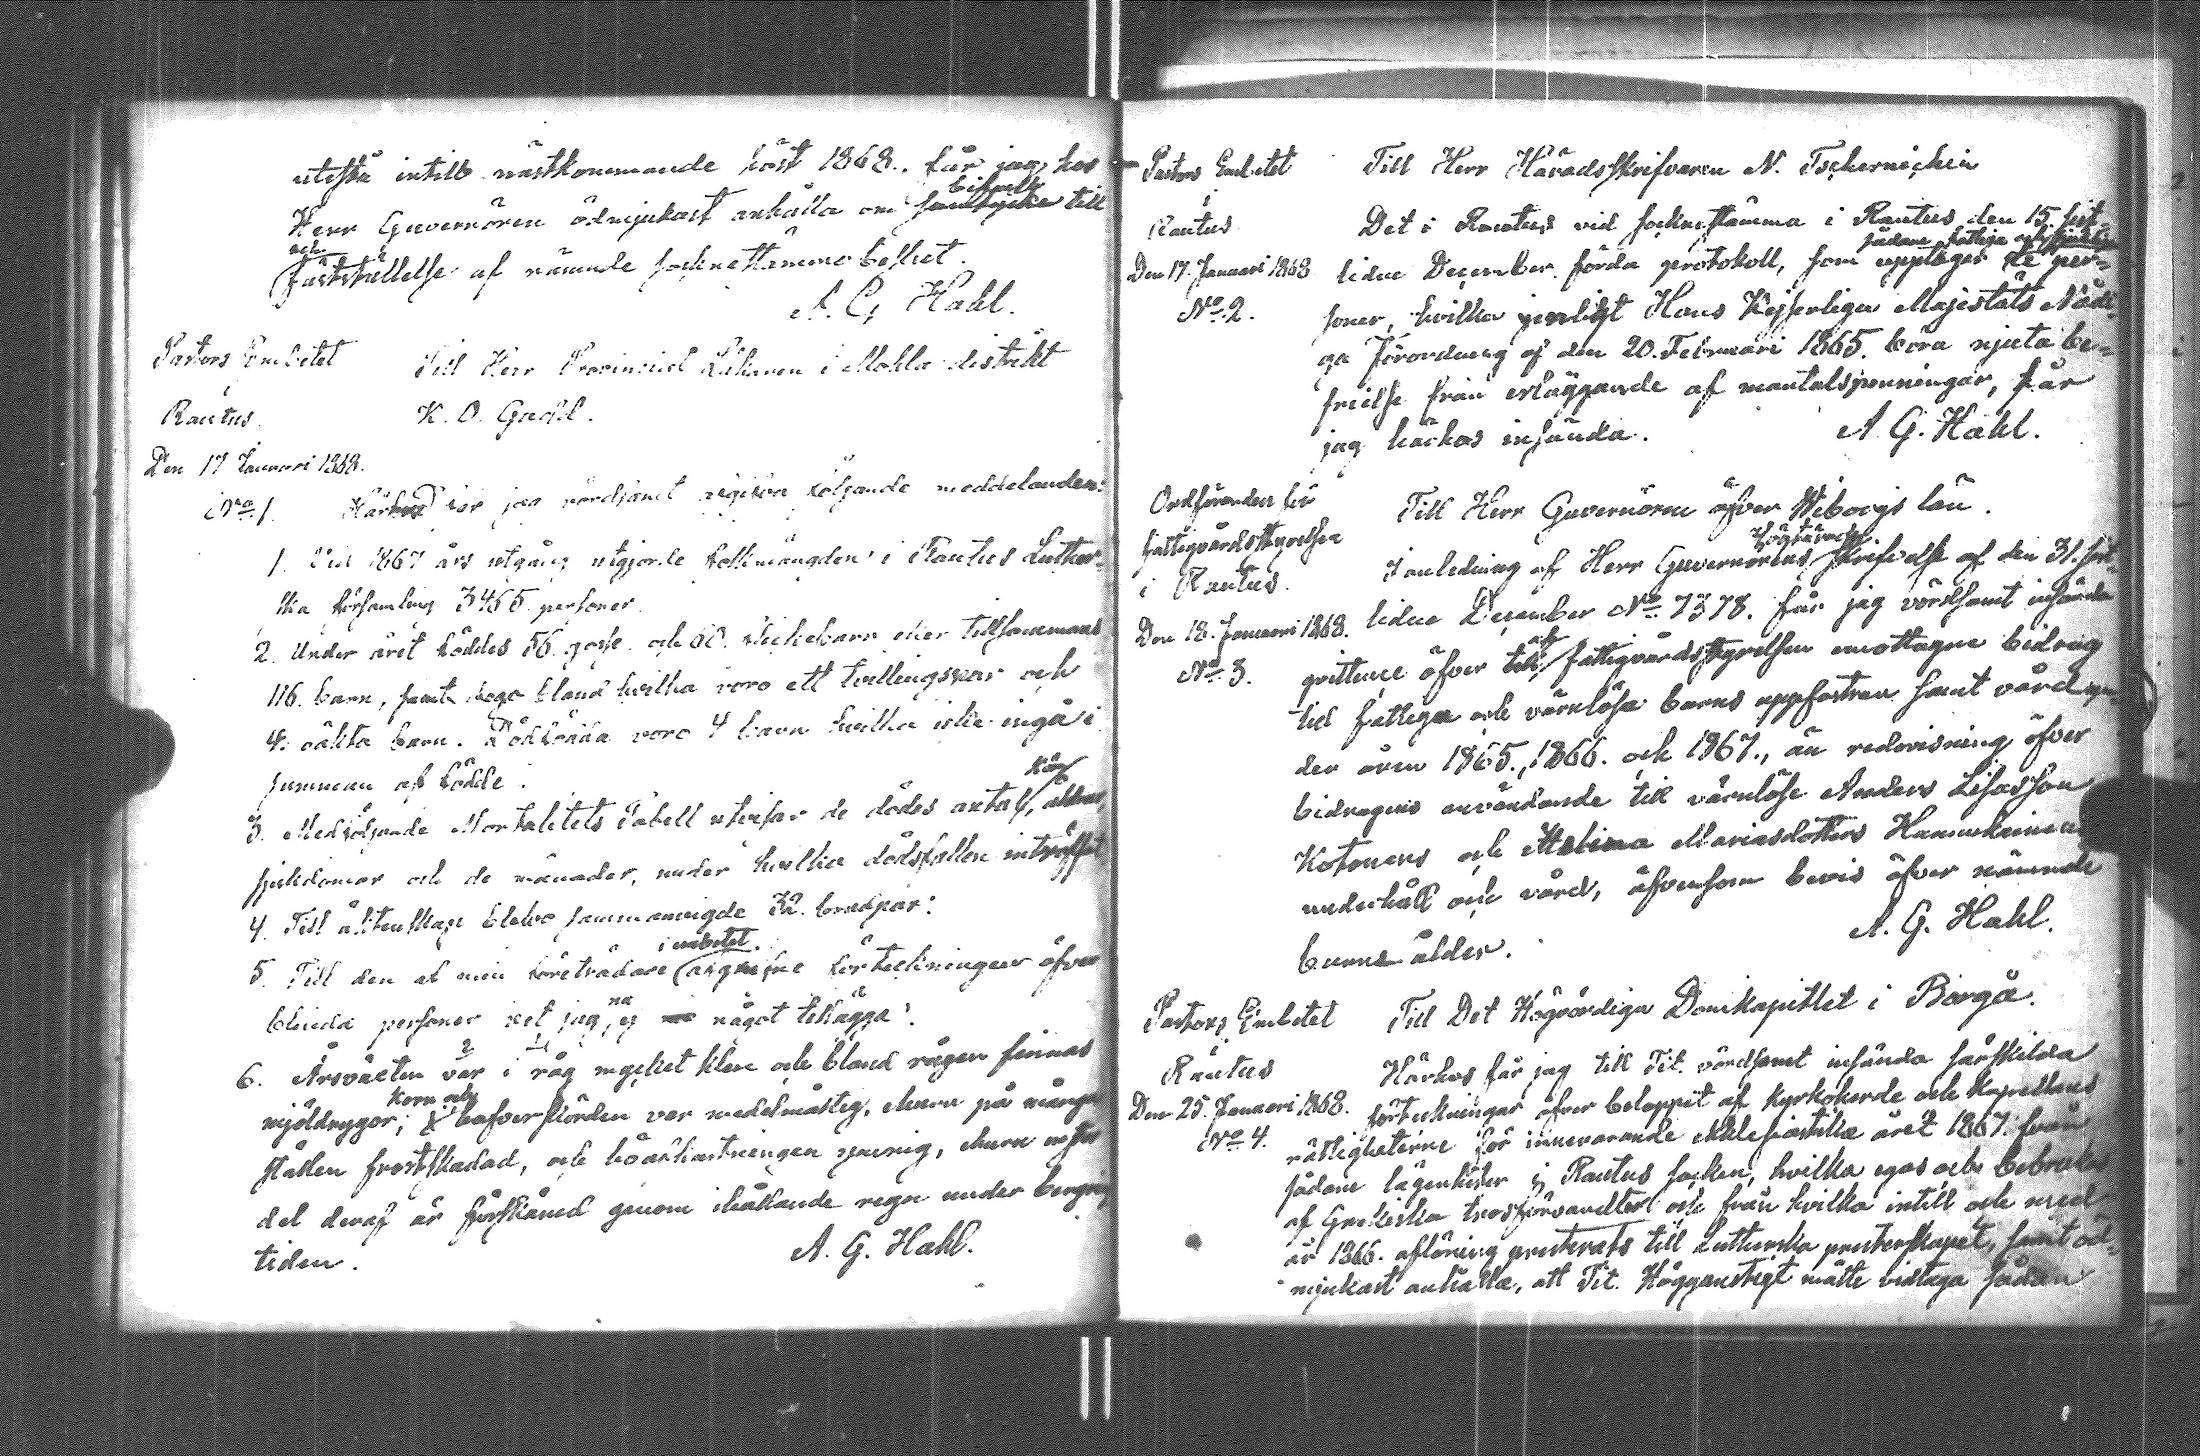 utstå intill nästkommande höst 1868., får jag hos
Herr Guvernören ödmjukast anhålla om bifall till
och
fastställelse af nämnde sockenstämmobeslut.
A. G. Hahl.
Pastors Embetet
Rautus
Den 17 Januari 1868.
No 1.
Till Herr Provincial Läkaren i Mohla distrikt
K. O.
Härhos får jag vördsamt afgifva följande meddelanden:
1. Vid 1867 års utgång utgjorde folkmängden i Rautus Luther-
ska församling 3465 personer.
2. Under året föddes 56. gosse och 60. flickebarn eller tillsammans
116. barn, bland hvilka voro ett tvillingspar och
4. oäkta barn. Dödfödda voro 4 barn hvilka icke ingå i
summan af födde.
3. Medföljande Mortalitets Tabell utvisar de dödes antal, kön, ålder,
sjukdomar och de månader, under hvilka dödsfallen inträffat
4. Till äktenskap blefvo sammanvigde 32. brudpar.
i embetet
5. Till den af min företrädare afgifne förteckningen öfver
blinda personer vet jag ej något tillägga.
6. Årsväxten var i råg mycket klen och bland rågen finnas
korn och
mjöldrygor; hafverskörden var medelmåttig, ehuru på många
ställen frostskadad, och höafkastningen ymnig, ehuru en stor
del deraf är förskämd genom ihållande regn under bergnings
tiden.
A. G. Hahl.
Pastors Embetet
i
Rautus
Den 17. Januari 1868
No 2.
Till Herr Häradsskrifvaren N. Tschernischin
Det i Rautus vid sockenstämma i Rautus den 15. sist-
sådane fattige och sjuklige
lidne December förda protokoll, som upptager de per-
soner, hvilka jemlikt Hans Kejserliga Majestäts Nådi-
ga Förordning af den 20. Februari 1865. böra njuta be-
frielse från erläggande af mantalspenningar, får
jag härhos insända.
A. G. Hahl.
Ordföranden för
fattigvårdsstyrelsen
i Rautus.
Den 18. Januari 1868.
No 3.
Till Herr Guvernören öfver Wiborgs län.
I anledning af Herr Guvernörens högtärade skrifvelse af den 31. sist-
lidne December No 7378. får jag vördsamt insända
qvittence öfver till af fattigvårdsstyrelsen emottagne bidrag
till fattiga och värnlösa barns uppfostran samt vård un-
der åren 1865., 1866. och 1867., än redovisning öfver
bidragens användande till värnlöse Anders Lisasson
Kotonens och Helena Mariasdotters Hannukainen
underhåll och vård, äfvensom bevis öfver nämnde
barns ålder.
A. G. Hahl.
Pastors Embetet
Rautus
Den 25. Januari 1868.
No 4.
Till Det Högvördiga Domkapitlet i Borgå.
Härhos får jag till Tit. vördsamt insända särskilda
förteckningar öfver beloppet af kyrkoherde och kapellans
rättigheterne för innevarande ekklesiastika året 1867. från
sådane lägenheter i Rautus socken, hvilka egas och bebrukas
af Grekiska trosförvandter och från hvilka intill och med
år 1866. aflöning presterats till Lutherska presterskapet, samt öd-
mjukast anhålla, att Tit. Höggunstigt måtte vidtaga sådan